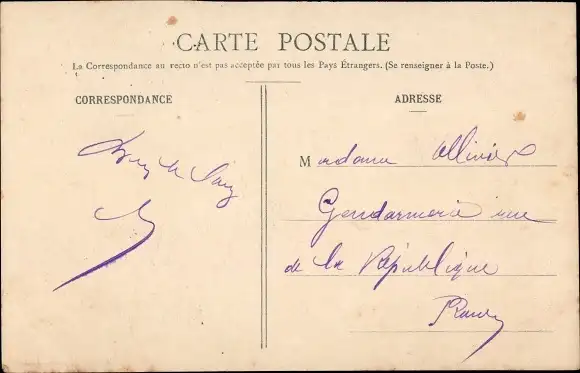 CARTE POSTALE
La Correspondance au recto n'est pas acceptée par tous les Pays Étrangers. (Se renseigner à la Poste.)
CORRESPONDANCE
ADRESSE
Madame Ollivier
Gendarmerie rue
de la République